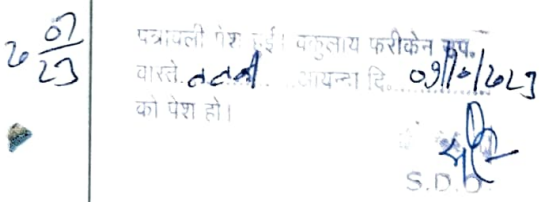 20 07/23
पत्रावली पेश हुई। वकुलाय फरीकेन उप.
वास्ते ........ आयन्दा दि. 09/10/2023
को पेश हो।
S.D.O.